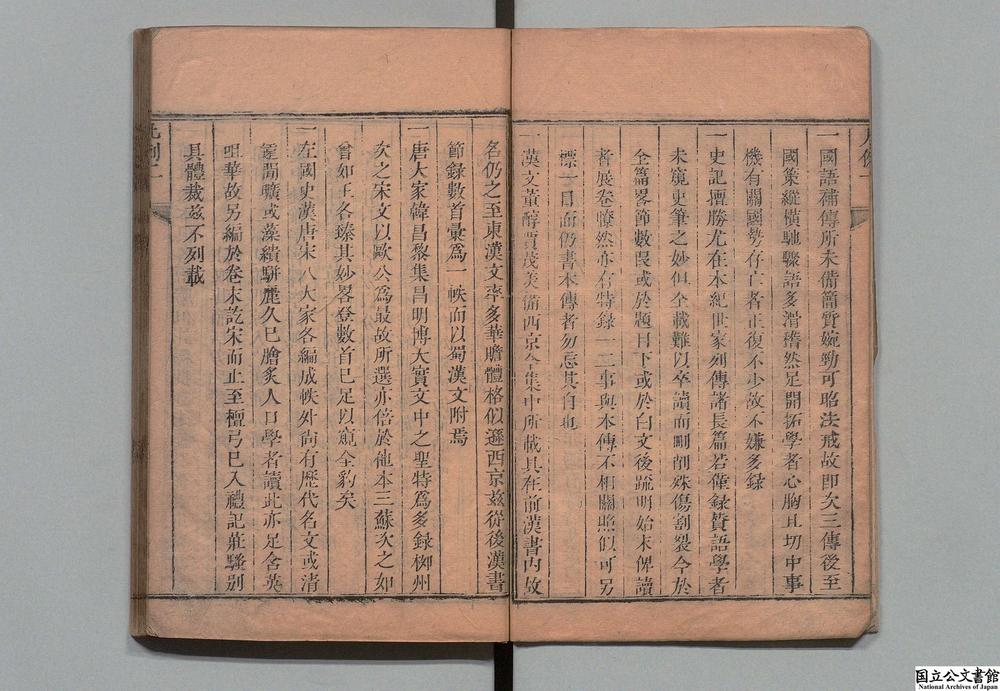 一國語補傳所未備簡質婉勁可昭法戒故即次三傳後至
國策縱橫馳驟語多滑稽然足開拓學者心胸且切中事
機有關國勢存亡者正復不少故不嫌多錄
一史記擅勝尤在本紀世家列傳諸長篇若僅錄贊語學者
未窺史筆之妙但全載難以卒讀而刪削殊傷割裂今於
全篇畧節數段或於題目下或於白文後疏明始末俾讀
者展卷瞭然亦有特錄一二事與本傳不相關照似可另
標一目而仍書本傳者勿忘其自也
一漢文董醇賈茂美備西京全集中所載具在前漢書內故
名仍之至東漢文率多華贍體格似遜西京茲從後漢書
節錄數首彙爲一帙而以蜀漢文附焉
一唐大家韓昌黎集昌明博大實文中之聖特爲多錄柳州
次之宋文以歐公爲最故所選亦倍於他本三蘇次之如
曾如王各臻其妙畧登數首已足以窺全豹矣
一左國史漢唐宋八大家各編成帙外尚有歷代名文或清
眞閒曠或藻繢駢麗久已膾炙人口學者讀此亦足含英
咀華故另編於卷末訖宋而止至檀弓已入禮記莊騷別
具體裁茲不列載
凡例二
国立公文書館
National Archives of Japan